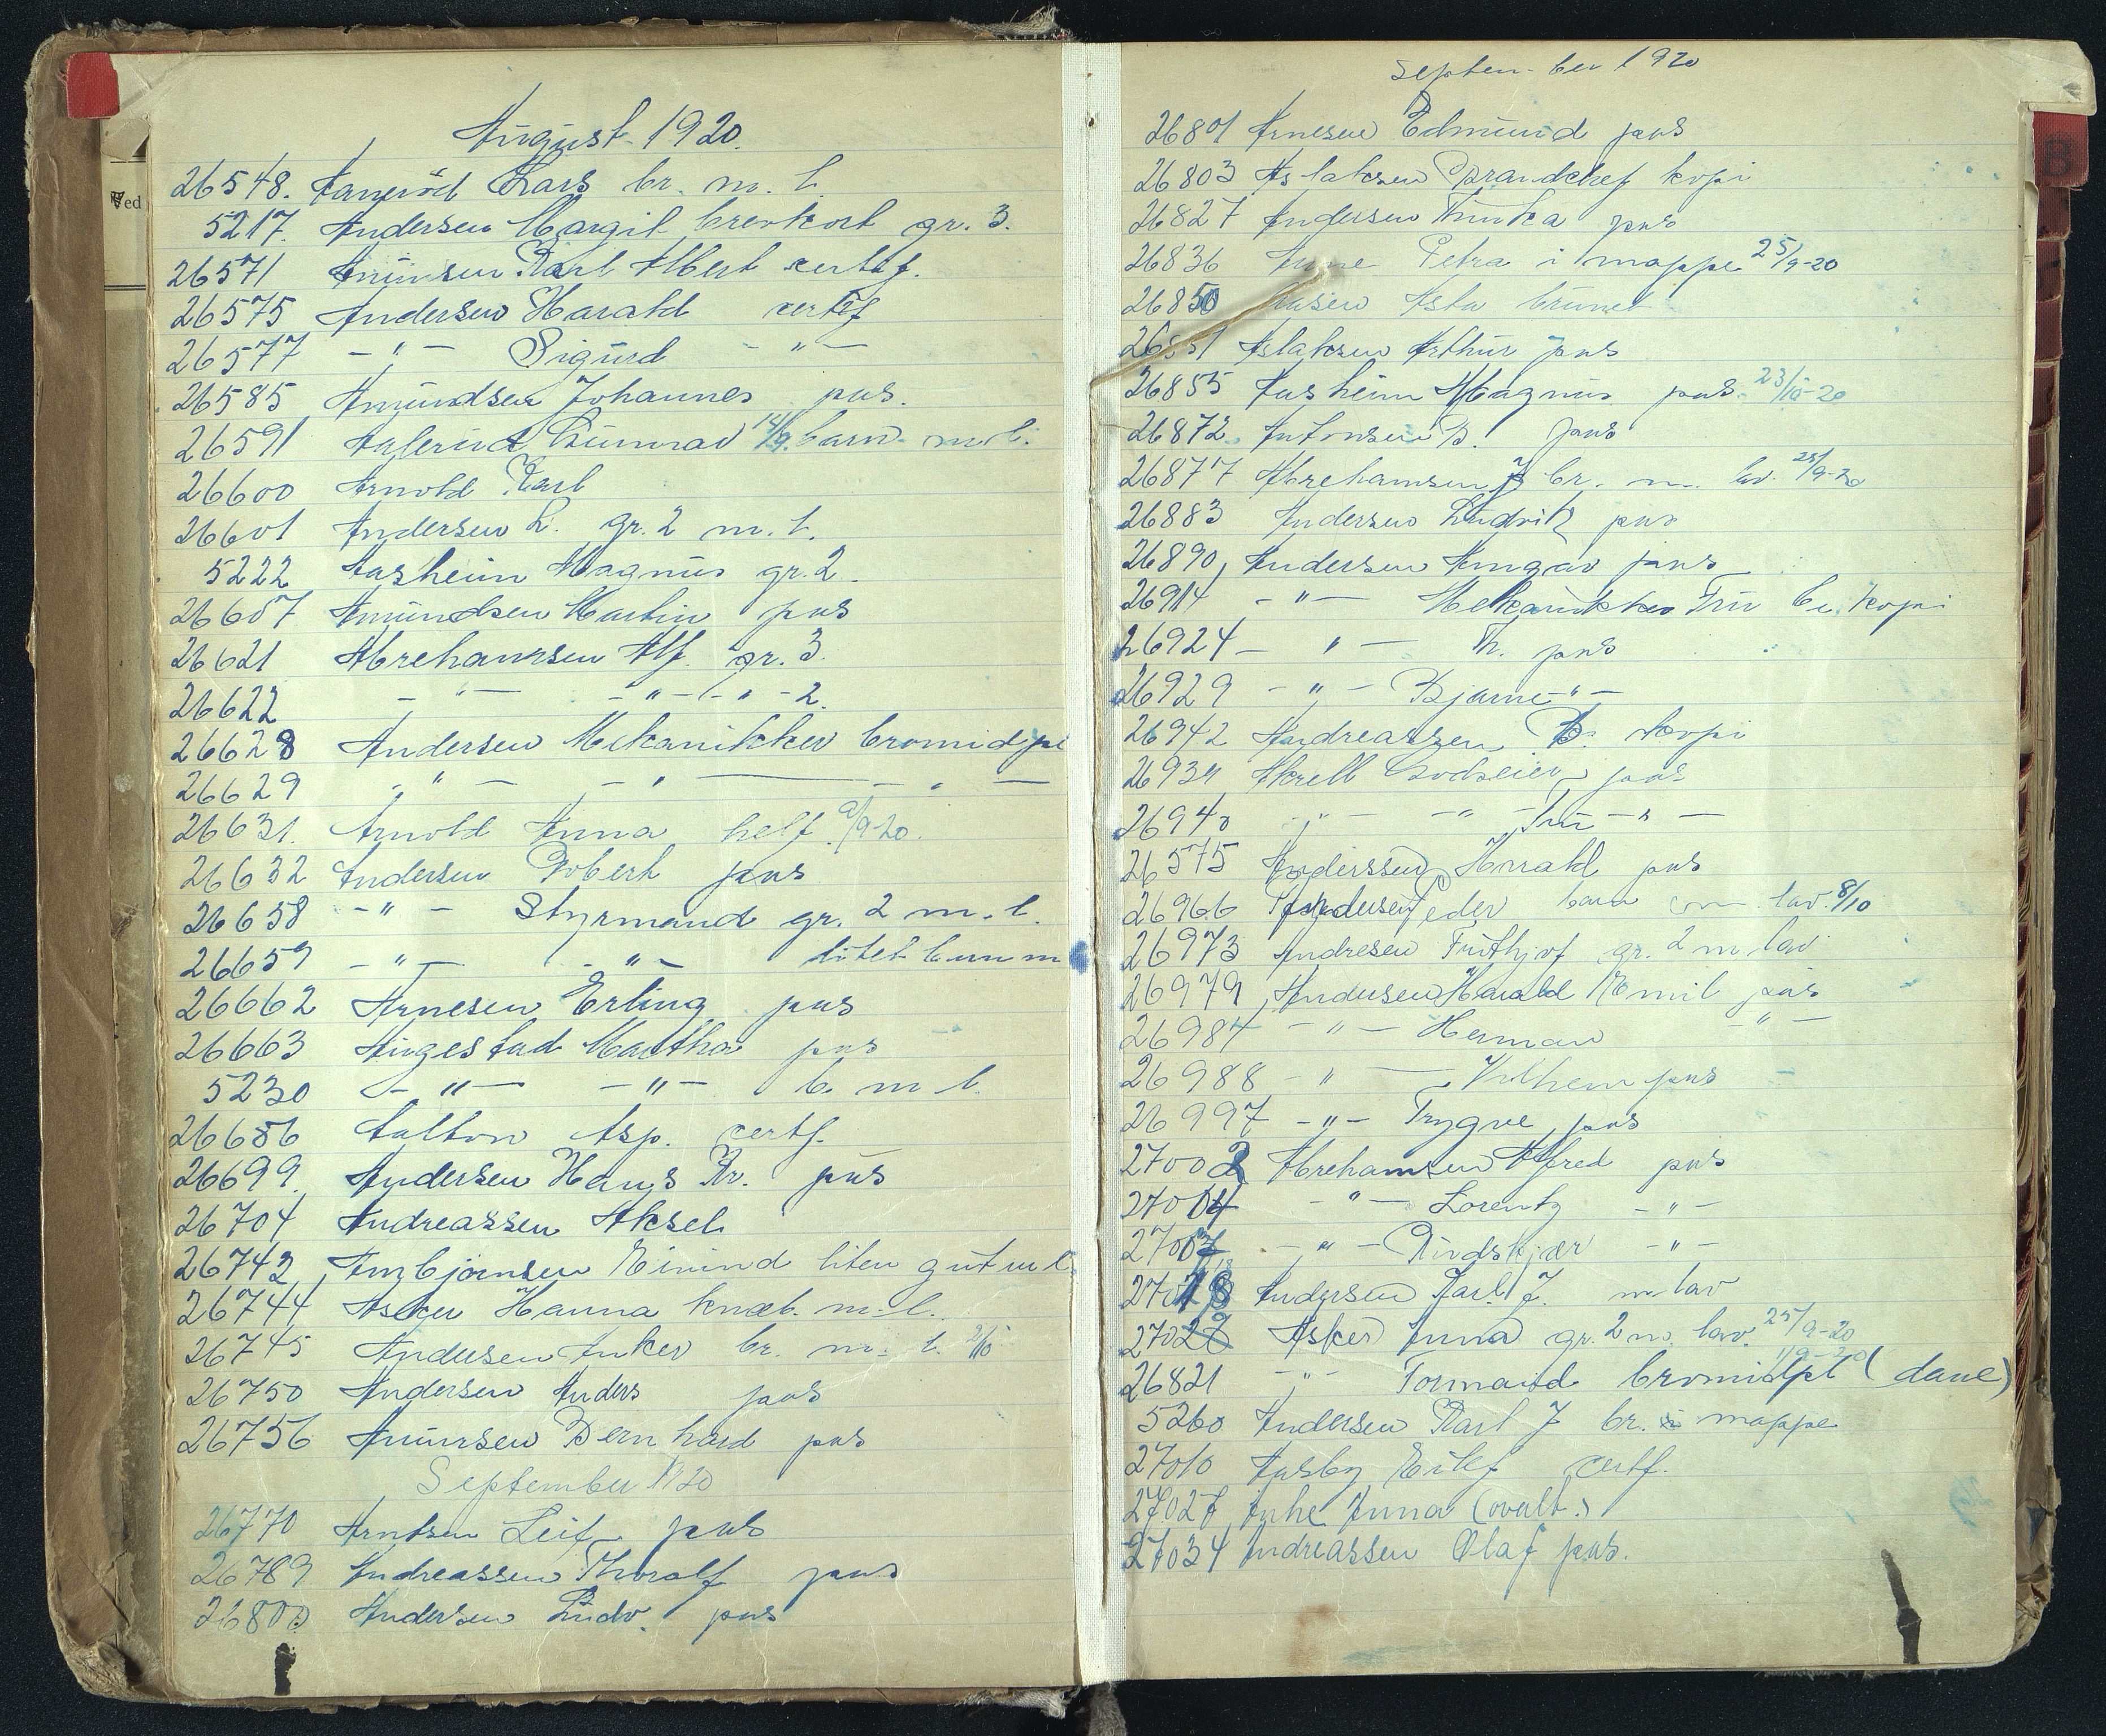 Ved
August 1920.
26548. Aanerød Lars br. m. l.
5217. Andersen Margit brevkort gr. 3.
26571 Karl Albert certif.
26575 Andersen Harald certif
26577 - " - Sigurd - " -
26585 Amundsen Johannes pas.
26591 Gunnvad 14/9. barn. m. l.
26600 Arnold Karl
26601 Andersen L. gr. 2 m. l.
5222 Aasheim Magnus gr. 2.
26607 Amundsen Martin pas
26621 Abrehamsen Alf. gr. 3.
26622 - " - - " - - " - 2.
26628 Andersen Mekanikker bromidpt
26629 " - - " - - " -
26631. Arnold Anna helf. 9/9-20.
26632 Andersen Robert pas
26658 - " - Styrmand gr. 2 m. l.
26659 - " - - " - litet barn m
26662 Arnesen Erling pas
26663 Augestad Martha pas
5230 - " - - " - b. m l.
26686 Aalton Asp. certf.
26699. Andersen Hans Kr. pas
26704 Andreassen Aksel
26742 Arnbjørnsen Eivind liten gut m l.
26744 Asker Hanna knæb. m. l.
26745 Andersen Anker br. m. l. 2/10
26750 Andersen Anders pas
26756 Bernhard pas
September 1920
26770 Arntsen Leif pas
26789 Andreassen Thoralf pas
26800 Andersen Ludv. pas
September 1920
26801 Arnesen Edmund pas
26803 Aslaksen Brandchef kopi
26827 Andersen Trinka pas
26836 Petra i mappe 25/9-20
26850 Asta brunet
26851 Aslaksen Arthur pas
26855 Aasheim Magnus pas. 23/10-20
26872. Antonsen B. pas
26877 Abrehamsen J br. m. lav. 25/9-20
26883 Andersen Ludvik pas
26890, Andersen Arngar pas
26914 - " - Mekanikker Fru br. kopi
26924 - " - Th. pas
26929 - " - Bjarne - " -
26942 Andreassen B. kopi
26939 Godseier pas
26940 - " - - " - Fru - " -
26575 Anderssen Harald pas
26966 Andersen Peder barn m lav. 8/10
26973 Andresen Frithjof gr. 2 m lav
26979 Andersen Harald Emil pas
26984 - " - Herman - " -
26988 - " - Vilhem pas
26997 - " - Trygve pas
27002 Abrehamsen Alfred pas
27004 - " - Lorentz - " -
2700 - " - Rindskjær - " -
27018 Andersen Karl J. m lav
27029 Asker Anna gr. 2 m. lav. 25/9-20
26821 - " - Formand bromidpt (dane) 11/9-20
5260 Andersen Karl J br. i mappe
27010 Aasby Eilef certf.
27027 Anke Anna (ovalt.)
27034 Andreassen Olaf pas.
B